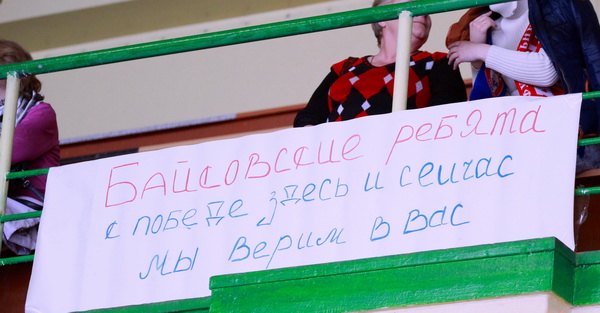 БАЙСОВСКИЕ ребята
к победе здесь и сейчас
мы верим в вас